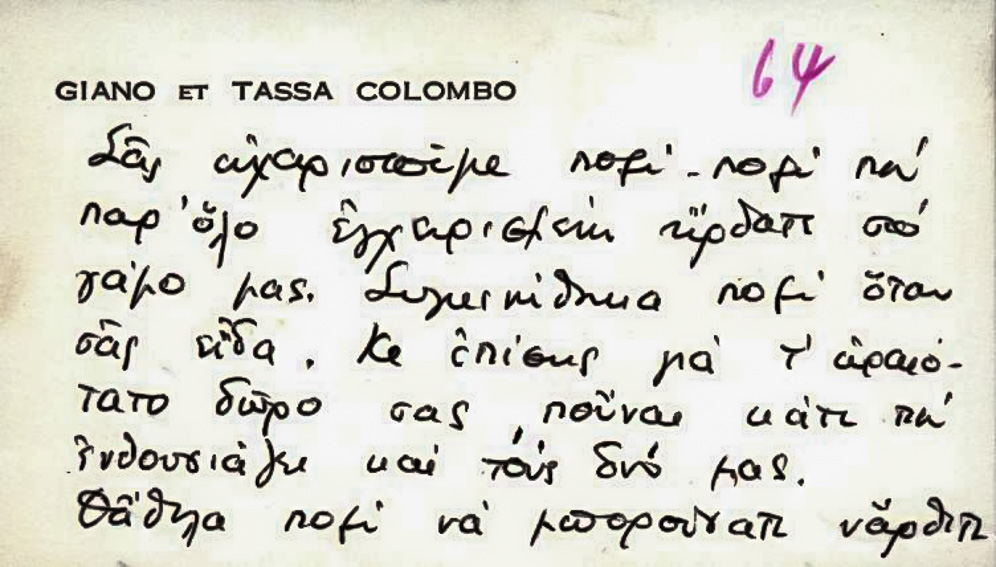 GIANO ET TASSA COLOMBO
64
Σᾶς εὐχαριστοῦμε πολὺ-πολὺ πού
παρ' ὅλο ἐγχειρισμένη ἤρθατε στό
γάμο μας. Συγκινήθηκα πολὺ ὅταν
σᾶς εἶδα. Κε ἐπίσης γιὰ τ' ὡραιό-
τατο δῶρο σας, ποὖναι κάτι πού
ἐνθουσιάζει καὶ τοὺς δυό μας.
Θἄθελα πολὺ νὰ μπορούσατε νἄρθετε